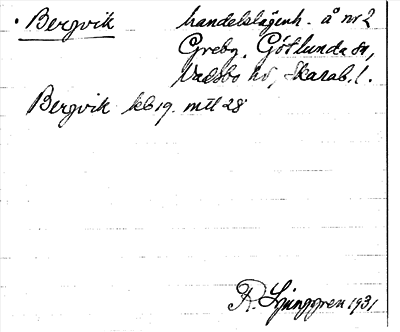 Bergvik handelslägenh. å nr 2
Greby, Götlunda sn,
Vadsbo hd, Skarab. l.
Bergvik kb 19. mtl 28
R. Ljunggren 1931